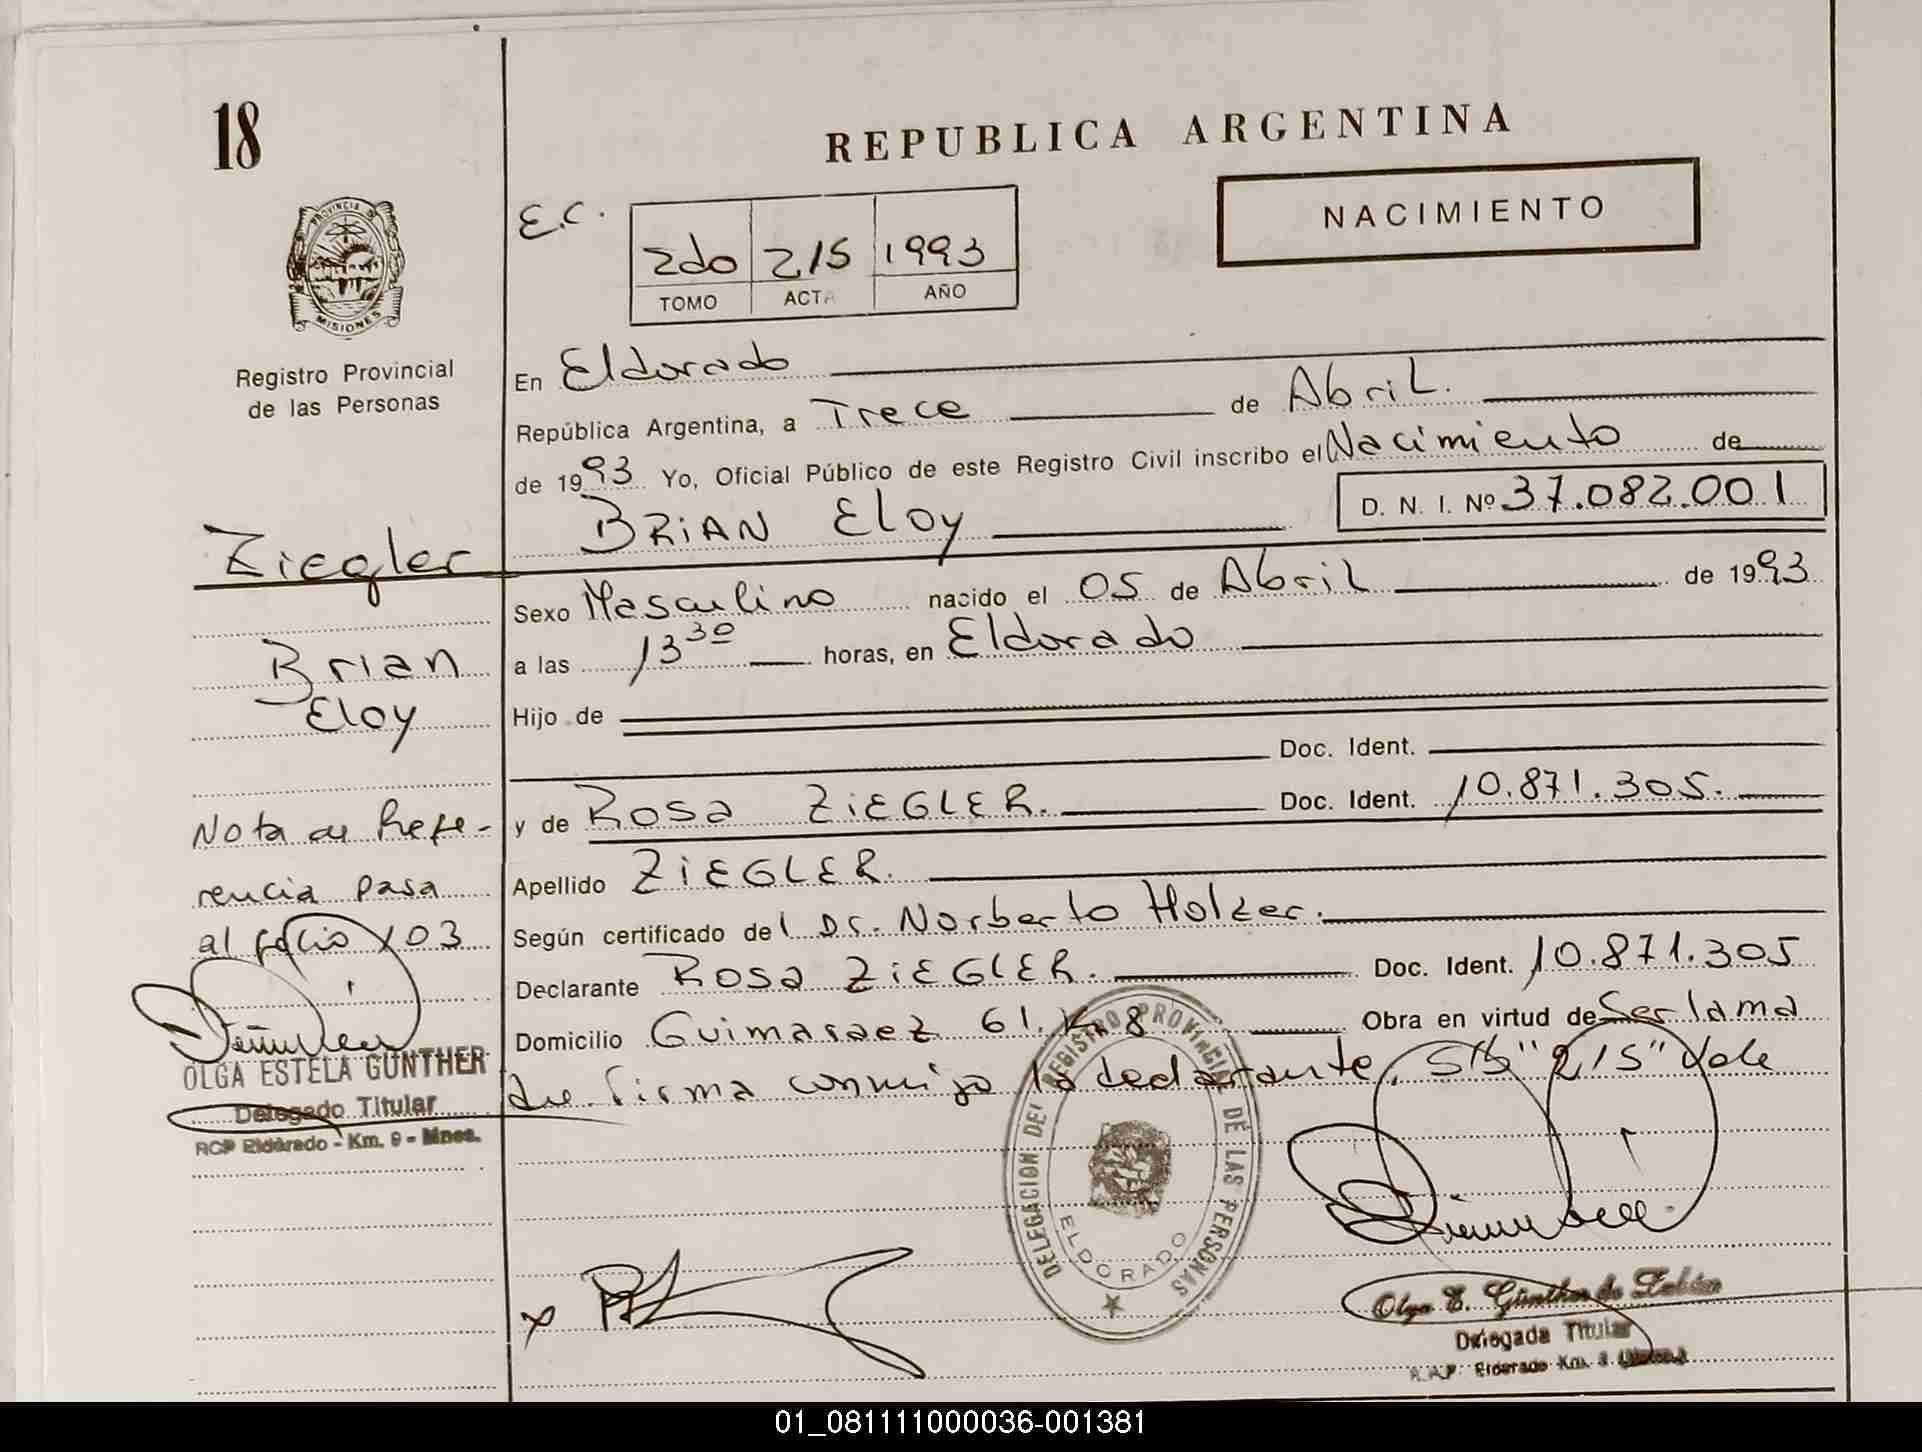 18
REPUBLICA ARGENTINA
NACIMIENTO
E.C.
2do 215 1993
TOMO ACTA AÑO
PROVINCIA DE MISIONES
Registro Provincial
de las Personas
En Eldorado
República Argentina, a Trece de Abril.
de 1993 Yo, Oficial Público de este Registro Civil inscribo el Nacimiento de
BRIAN Eloy D. N. I. Nº 37.082.001
Ziegler
Sexo Masculino nacido el 05 de Abril de 1993
a las 13 30 horas, en Eldorado
Brian
Eloy
Hijo de
Doc. Ident.
y de ROSA ZIEGLER. Doc. Ident. 10.871.305.
Apellido ZIEGLER.
Según certificado del Dr. Norberto Holzer.
Declarante ROSA ZIEGLER. Doc. Ident. 10.871.305
Domicilio Guimaraez 61. Km 8 Obra en virtud de Ser la ma
dre. Firma conmigo la declarante. S/b "215" Vale
Nota de Refe-
rencia pasa
al folio 103
OLGA ESTELA GUNTHER
Delegado Titular
RCP Eldorado - Km. 9 - Mnes.
DELEGACION DEL REGISTRO PROVINCIAL DE LAS PERSONAS
ELDORADO
x
Olga E. Günther de
Delegada Titular
Eldorado Km.
01_081111000036-001381